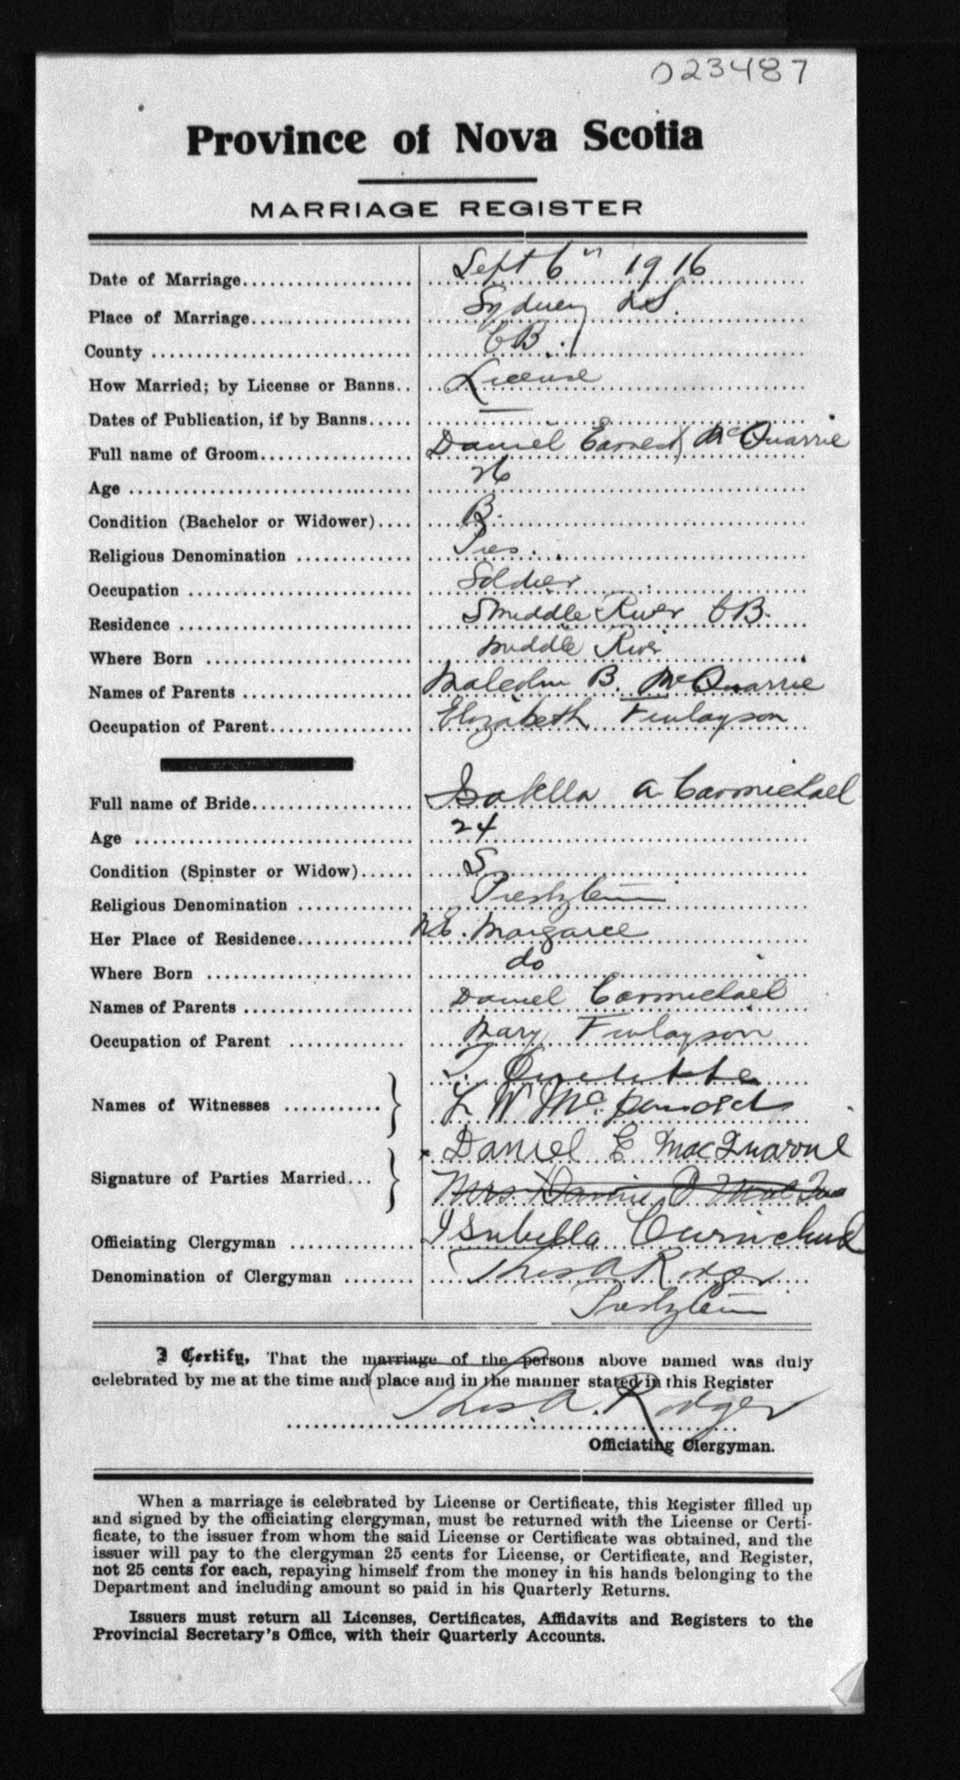 023487
Province of Nova Scotia
MARRIAGE REGISTER
Date of Marriage Sept 6th 1916
Place of Marriage Sydney N.S.
County C B.
How Married; by License or Banns License
Dates of Publication, if by Banns —
Full name of Groom Daniel Earnest McQuarrie
Age 26
Condition (Bachelor or Widower) B.
Religious Denomination Pres.
Occupation Soldier
Residence Middle River CB.
Where Born Middle River
Names of Parents Malcolm B. McQuarrie
Occupation of Parent Elizabeth Finlayson
Full name of Bride Isabella A Carmichael
Age 24
Condition (Spinster or Widow) S
Religious Denomination
Her Place of Residence N.E. Margaree
Where Born do
Names of Parents Daniel Carmichael
Occupation of Parent Mary Finlayson
Names of Witnesses
L W Mc
Signature of Parties Married Daniel E MacQuarrie
Mrs.
Isabella Carmichael
Officiating Clergyman Thos A Rodger
Denomination of Clergyman
I Certify, That the marriage of the persons above named was duly
celebrated by me at the time and place and in the manner stated in this Register
Thos. A. Rodger
Officiating Clergyman.
When a marriage is celebrated by License or Certificate, this Register filled up
and signed by the officiating clergyman, must be returned with the License or Certi-
ficate, to the issuer from whom the said License or Certificate was obtained, and the
issuer will pay to the clergyman 25 cents for License, or Certificate, and Register,
not 25 cents for each, repaying himself from the money in his hands belonging to the
Department and including amount so paid in his Quarterly Returns.
Issuers must return all Licenses, Certificates, Affidavits and Registers to the
Provincial Secretary's Office, with their Quarterly Accounts.